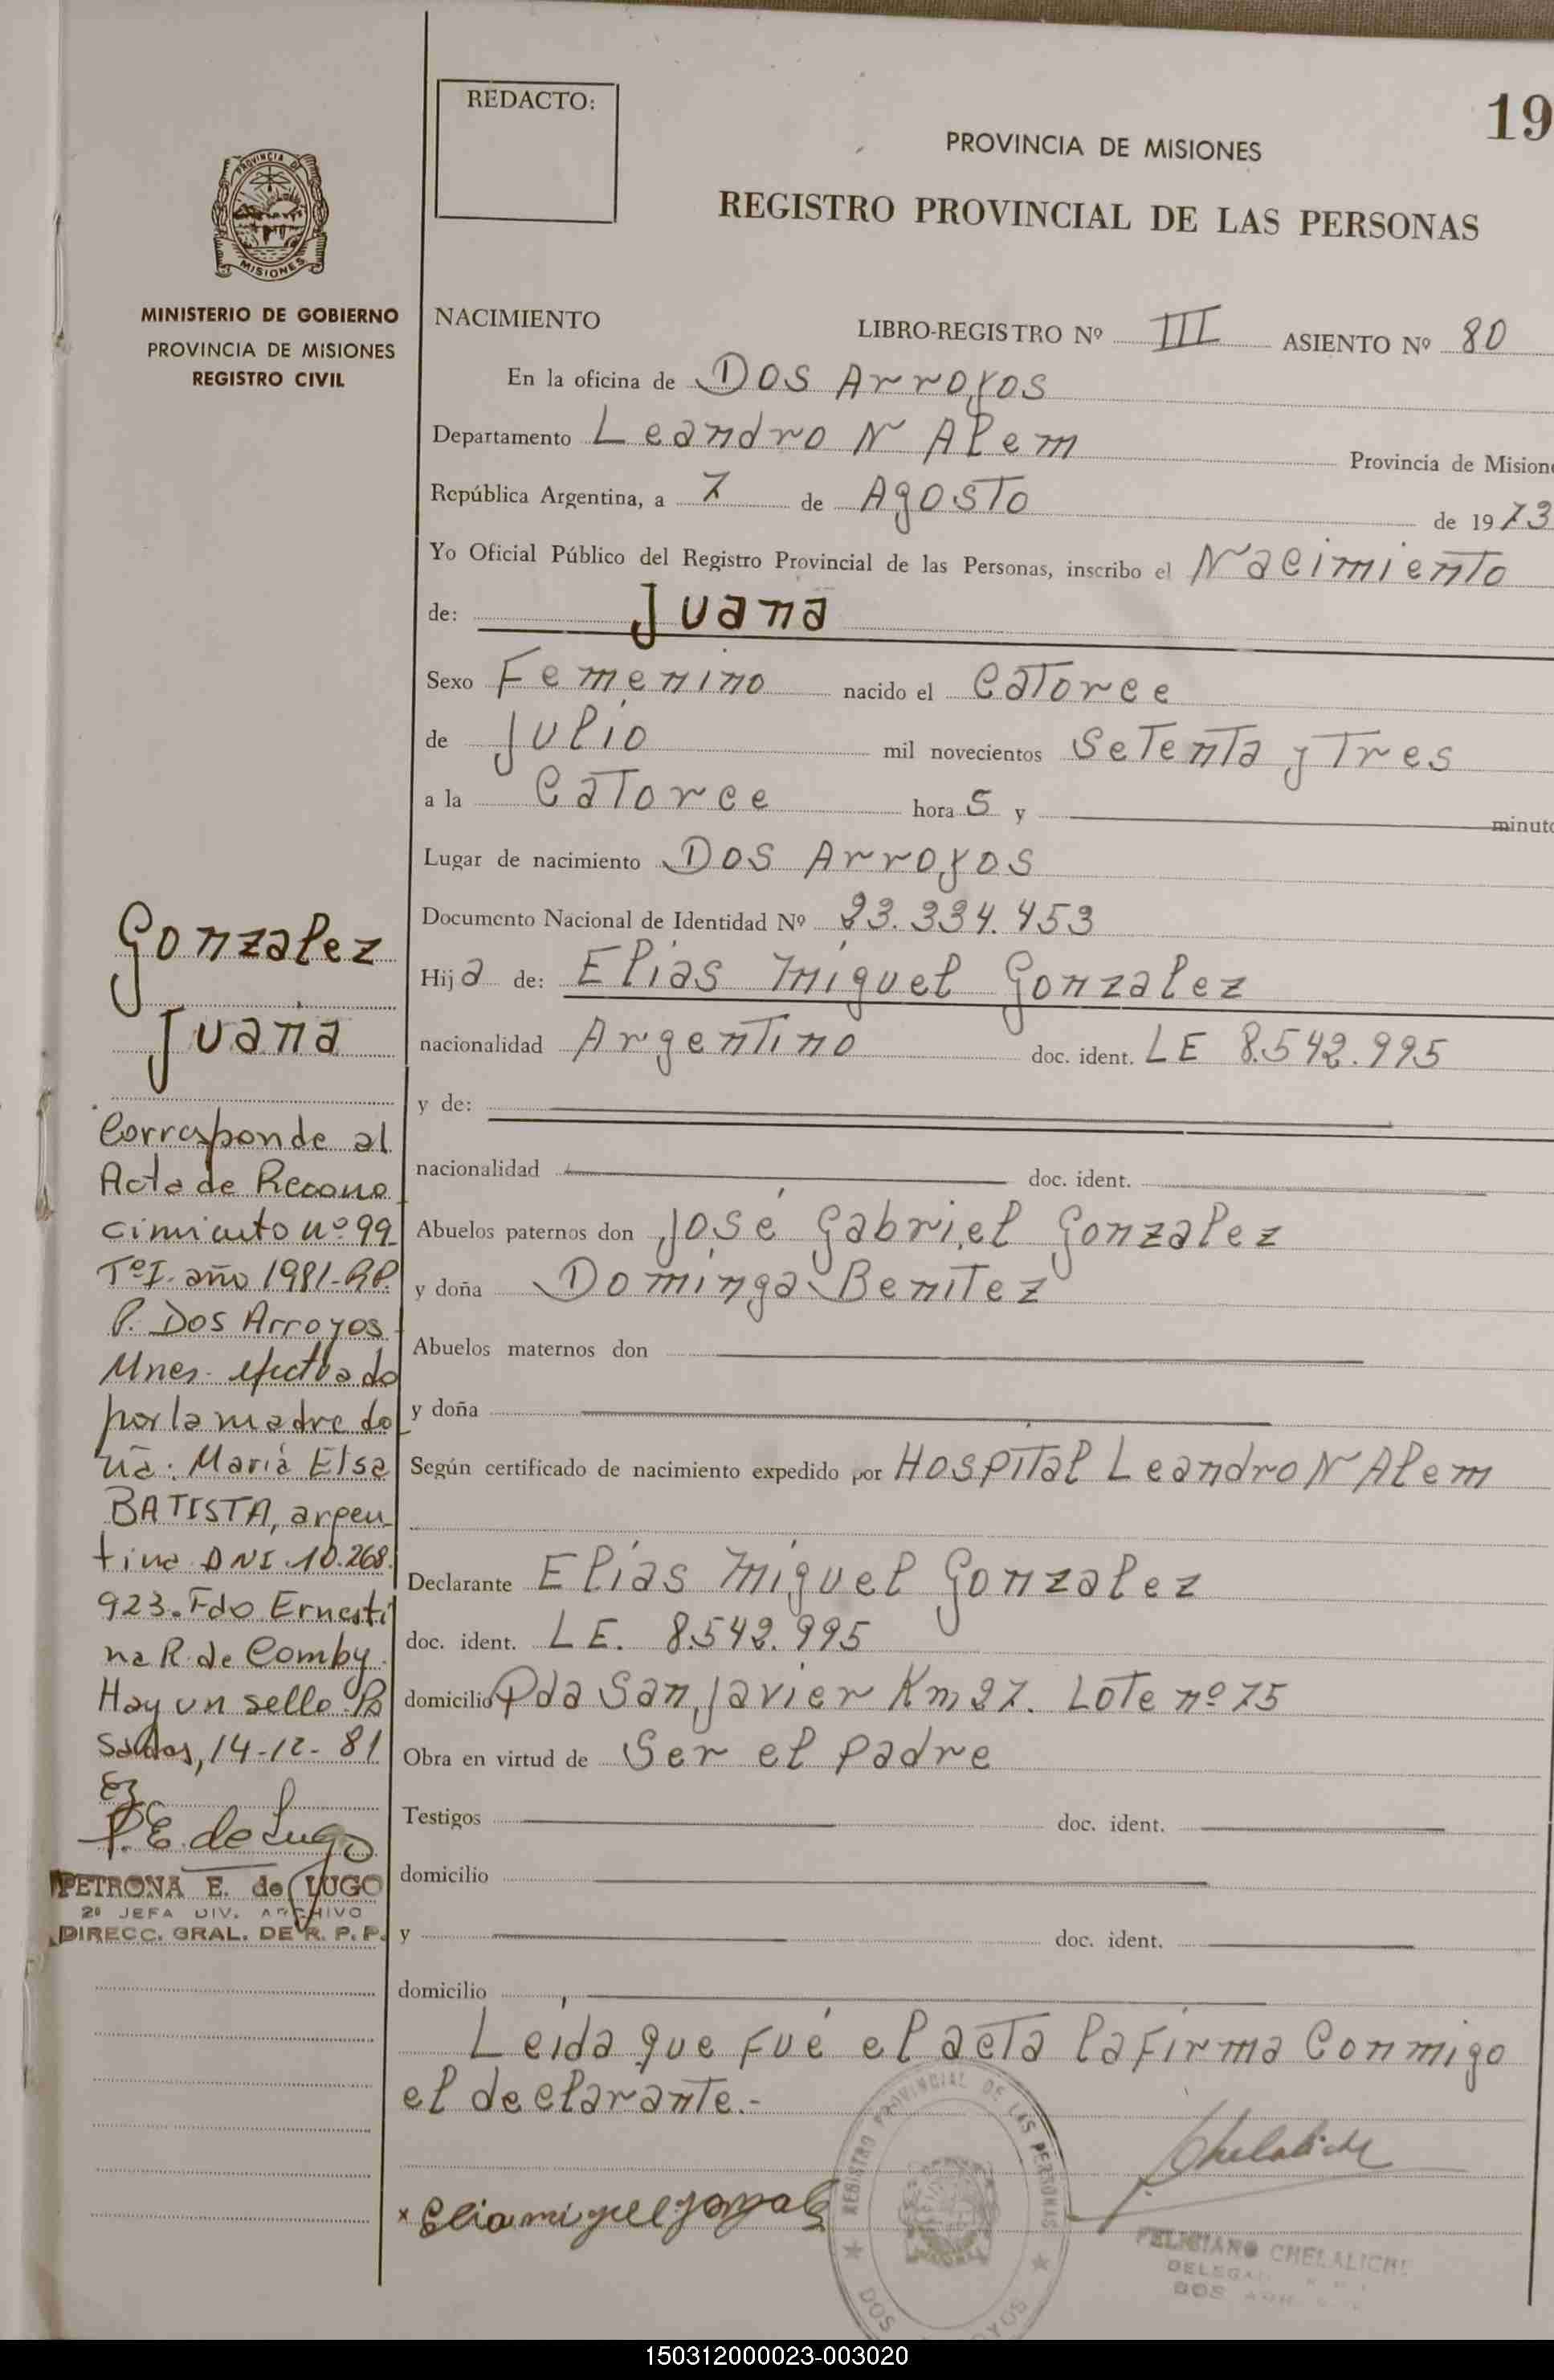 REDACTO:
19
PROVINCIA DE MISIONES
REGISTRO PROVINCIAL DE LAS PERSONAS
PROVINCIA DE
MISIONES
MINISTERIO DE GOBIERNO
PROVINCIA DE MISIONES
REGISTRO CIVIL
NACIMIENTO LIBRO-REGISTRO Nº III ASIENTO Nº 80
En la oficina de Dos Arroyos
Departamento Leandro N Alem Provincia de Mision
República Argentina, a 7 de Agosto de 1973
Yo Oficial Público del Registro Provincial de las Personas, inscribo el Nacimiento
de: Juana
Sexo Femenino nacido el Catorce
de Julio mil novecientos Setenta y Tres
a la Catorce hora S y minuto
Lugar de nacimiento Dos Arroyos
Documento Nacional de Identidad Nº 23.334.453
Hija de: Elías Miguel Gonzalez
nacionalidad Argentino doc. ident. LE 8.542.995
y de:
nacionalidad doc. ident.
Abuelos paternos don José Gabriel Gonzalez
y doña Dominga Benitez
Abuelos maternos don
y doña
Según certificado de nacimiento expedido por Hospital Leandro N Alem
Declarante Elías Miguel Gonzalez
doc. ident. LE. 8.542.995
domicilio Pda San Javier Km 27. Lote nº 75
Obra en virtud de Ser el padre
Testigos doc. ident.
domicilio
y doc. ident.
domicilio
Leída que fué el acta la firma Conmigo
el declarante.-
Gonzalez
Juana
Corresponde al
Acta de Recono
cimiento nº 99
Tº I. año 1981-RP.
P. Dos Arroyos
Mnes. efectuado
por la madre do
ña: María Elsa
BATISTA, argen
tina DNI. 10.268.
923. Fdo Ernesti
na R. de Comby.
Hay un sello. Po
sadas, 14-12-81
P.E. de Lugo
PETRONA E. de LUGO
2ª JEFA DIV. ARCHIVO
DIRECC. GRAL. DE R. P. P.
x Elia miguel gonzalez
REGISTRO PROVINCIAL DE LAS PERSONAS
DOS ARROYOS
Chelaliche
FELICIANO CHELALICHE
150312000023-003020